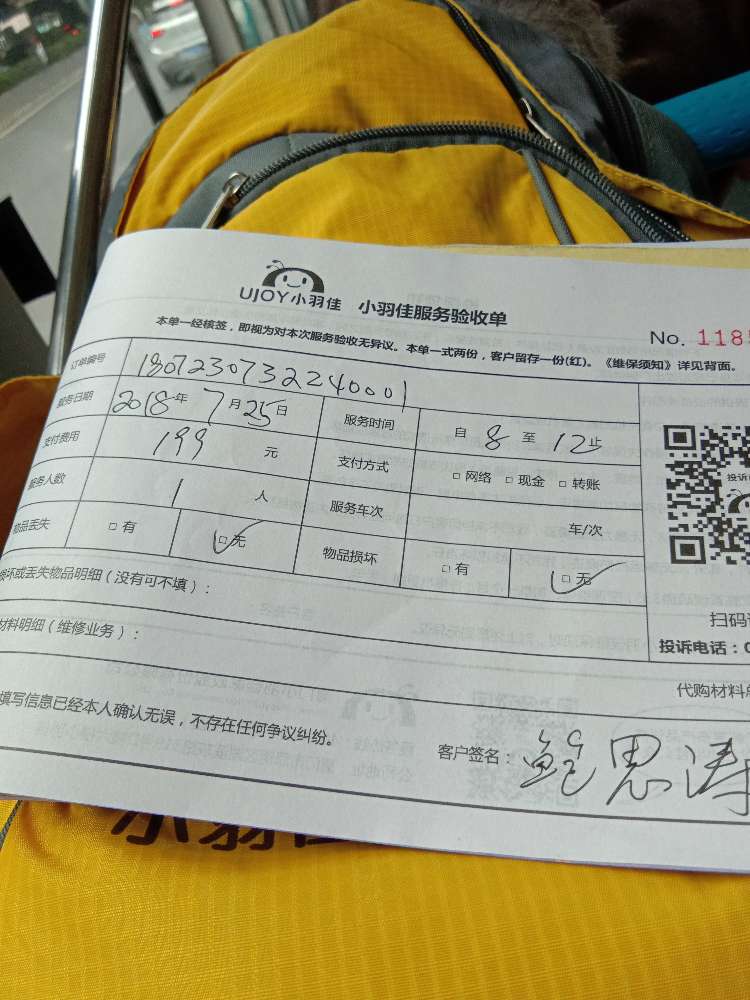 UJOY小羽佳 小羽佳服务验收单
本单一经核签，即视为对本次服务验收无异议。本单一式两份，客户留存一份(红)。《维保须知》详见背面。
No. 118
订单编号 1807230732240001
服务日期 2018年7月25日 服务时间 自 8 至 12 止
支付费用 199 元 支付方式 □ 网络 □ 现金 □ 转账
服务人数 1 人 服务车次 车/次
物品丢失 □ 有 □ 无 物品损坏 □ 有 □ 无
投诉
损坏或丢失物品明细（没有可不填）：
扫码
材料明细（维修业务）：
投诉电话：0
代购材料单
填写信息已经本人确认无误，不存在任何争议纠纷。
客户签名：鲍思涛
小羽佳